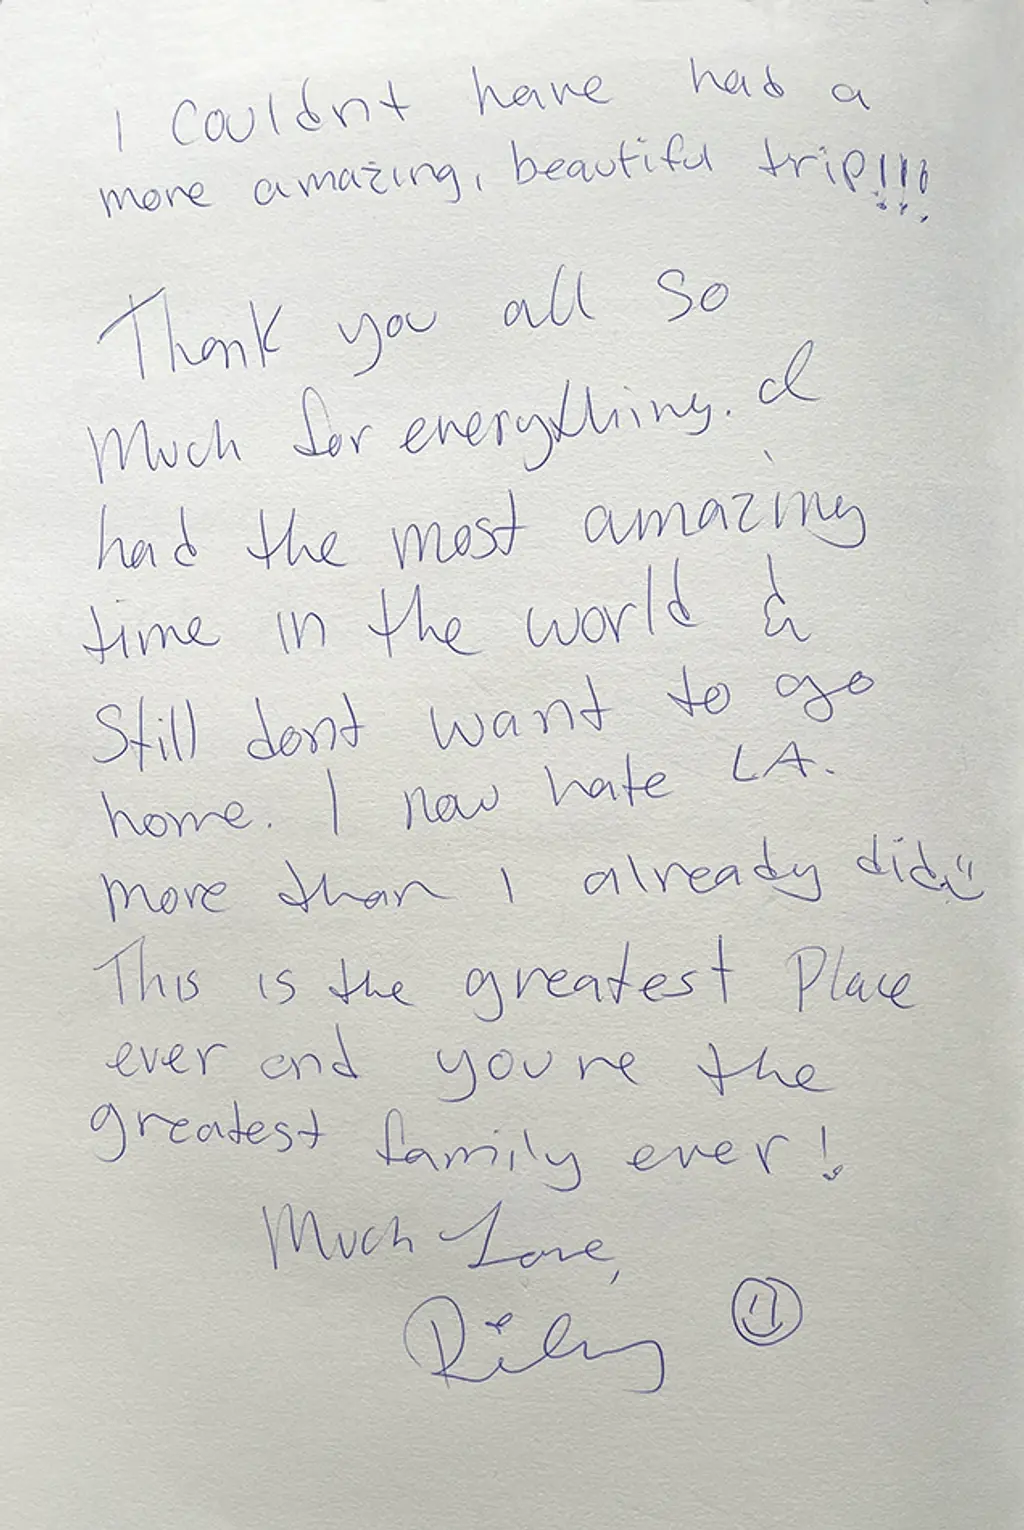 I Couldnt have had a
more amazing, beautiful trip!!!
Thank you all so
Much for everything. I
had the most amazing
time in the world &
Still dont want to go
home. I now hate LA.
more than I already did
This is the greatest Place
ever and you're the
greatest family ever!
Much Love,
Riley